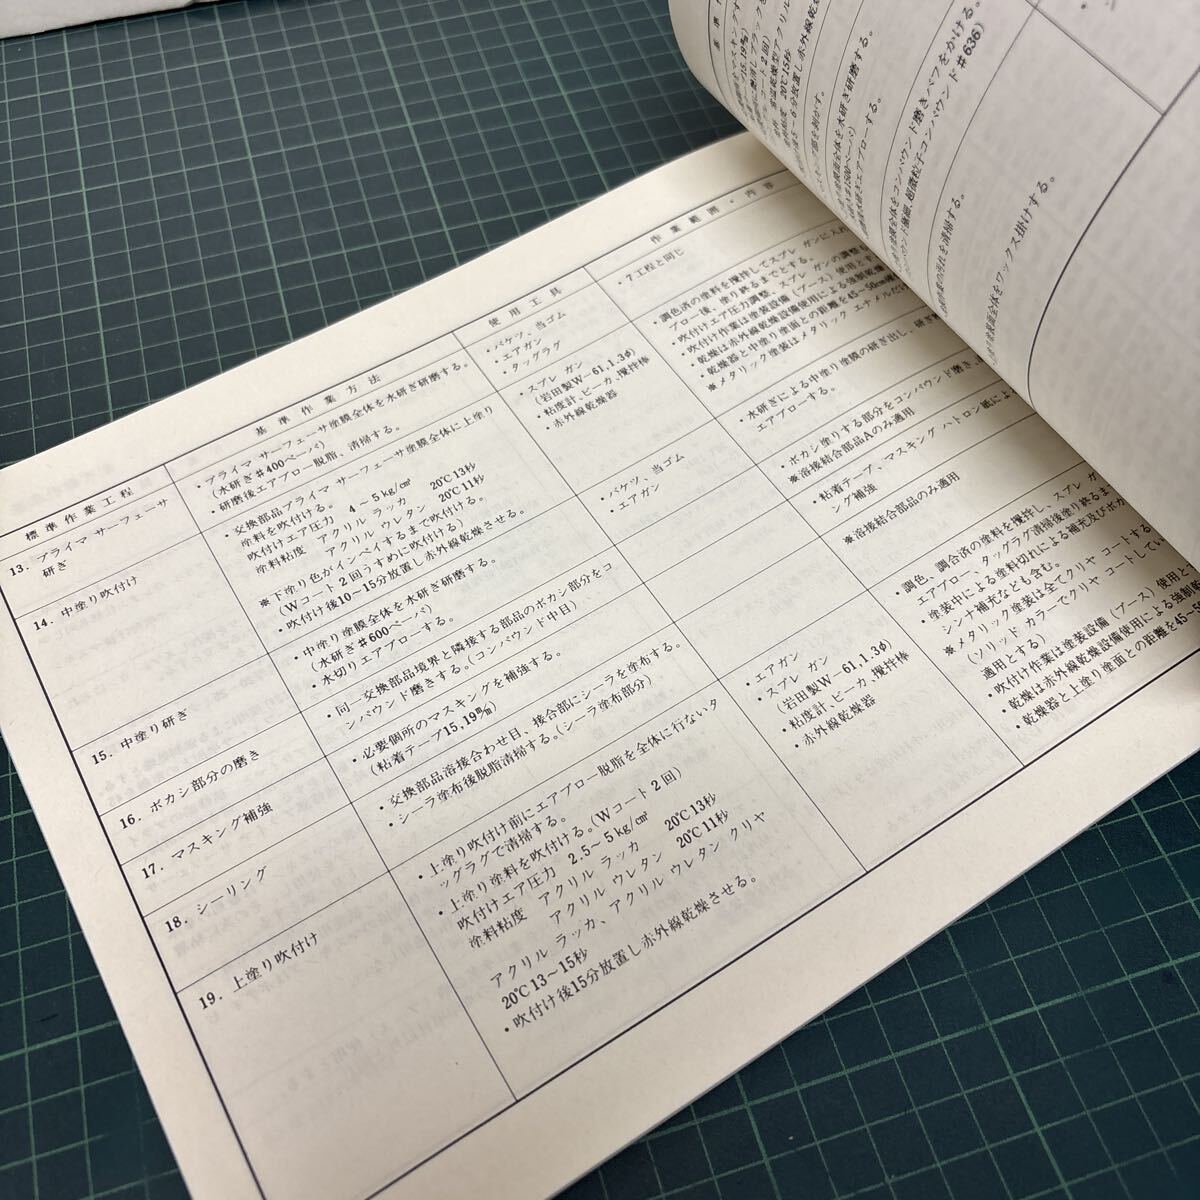 標準作業工程
基準作業方法
使用工具
作業範囲・内容
13. プライマ サーフェーサ
研ぎ
・プライマ サーフェーサ塗膜全体を水研ぎ研磨する。
(水研ぎ#400ペーパ)
・研磨後エアブロー脱脂、清掃する。
・バケツ、当ゴム
・エアガン
・タッグラグ
・7工程と同じ
14. 中塗り吹付け
・交換部品プライマ サーフェーサ塗膜全体に上塗り
塗料を吹付ける。
吹付けエア圧力 4～5kg/cm²
塗料粘度 アクリル ラッカ 20℃13秒
アクリル ウレタン 20℃11秒
※下塗り色がインペイするまで吹付ける。
(Wコート2回うすめに吹付ける)
・吹付け後10～15分放置し赤外線乾燥させる。
・スプレ ガン
(岩田製W−61,1.3φ)
・粘度計、ビーカ、攪拌棒
・赤外線乾燥器
・調色済の塗料を攪拌してスプレ ガンに入れ
ブロー後、塗り終るまでとする。
・吹付けエア圧力調整、スプレ ガンの調整
・吹付け作業は塗装設備(ブース)使用と
・乾燥は赤外線乾燥設備使用による強制乾燥
・乾燥器と中塗り塗面との距離を45～50cm
※メタリック塗装はメタリック エナメルだけ
15. 中塗り研ぎ
・中塗り塗膜全体を水研ぎ研磨する。
(水研ぎ#600ペーパ)
・水切りエアブローする。
・バケツ、当ゴム
・エアガン
・水研ぎによる中塗り塗膜の研ぎ出し、研ぎ
エアブローする。
16. ボカシ部分の磨き
・同一交換部品境界と隣接する部品のボカシ部分をコ
ンパウンド磨きする。(コンパウンド中目)
・ボカシ塗りする部分をコンパウンド磨き
※溶接結合部品Aのみ適用
17. マスキング補強
・必要個所のマスキングを補強する。
(粘着テープ15,19m/m)
・粘着テープ、マスキング ハトロン紙によ
ング補強
18. シーリング
・交換部品溶接合わせ目、接合部にシーラを塗布する。
・シーラ塗布後脱脂清掃する。(シーラ塗布部分)
※溶接結合部品のみ適用
19. 上塗り吹付け
・上塗り吹付け前にエアブロー脱脂を全体に行ないタ
ッグラグで清掃する。
・上塗り塗料を吹付ける。(Wコート2回)
吹付けエア圧力 2.5～5kg/cm²
塗料粘度 アクリル ラッカ 20℃13秒
アクリル ウレタン 20℃11秒
アクリル ラッカ、アクリル ウレタン クリヤ
20℃13～15秒
・吹付け後15分放置し赤外線乾燥させる。
・エアガン
・スプレ ガン
(岩田製W−61,1.3φ)
・粘度計、ビーカ、攪拌棒
・赤外線乾燥器
・調色、調合済の塗料を攪拌し、スプレ ガ
エアブロー、タッグラグ清掃後塗り終るま
・塗装中による塗料切れによる補充及びボカ
シンナ補充なども含む。
※メタリック塗装は全てクリヤ コートする
(ソリッド カラーでクリヤ コートしてい
適用とする)
・吹付け作業は塗装設備(ブース)使用と
・乾燥は赤外線乾燥設備使用による強制乾
・乾燥器と上塗り塗面との距離を45～
水研ぎ研磨する。
#1500ペーパ)
エアブローする。
全体をコンパウンド磨きバフをかける。
超微粒子コンパウンド#636)
の汚れを清掃する。
全体をワックス掛けする。